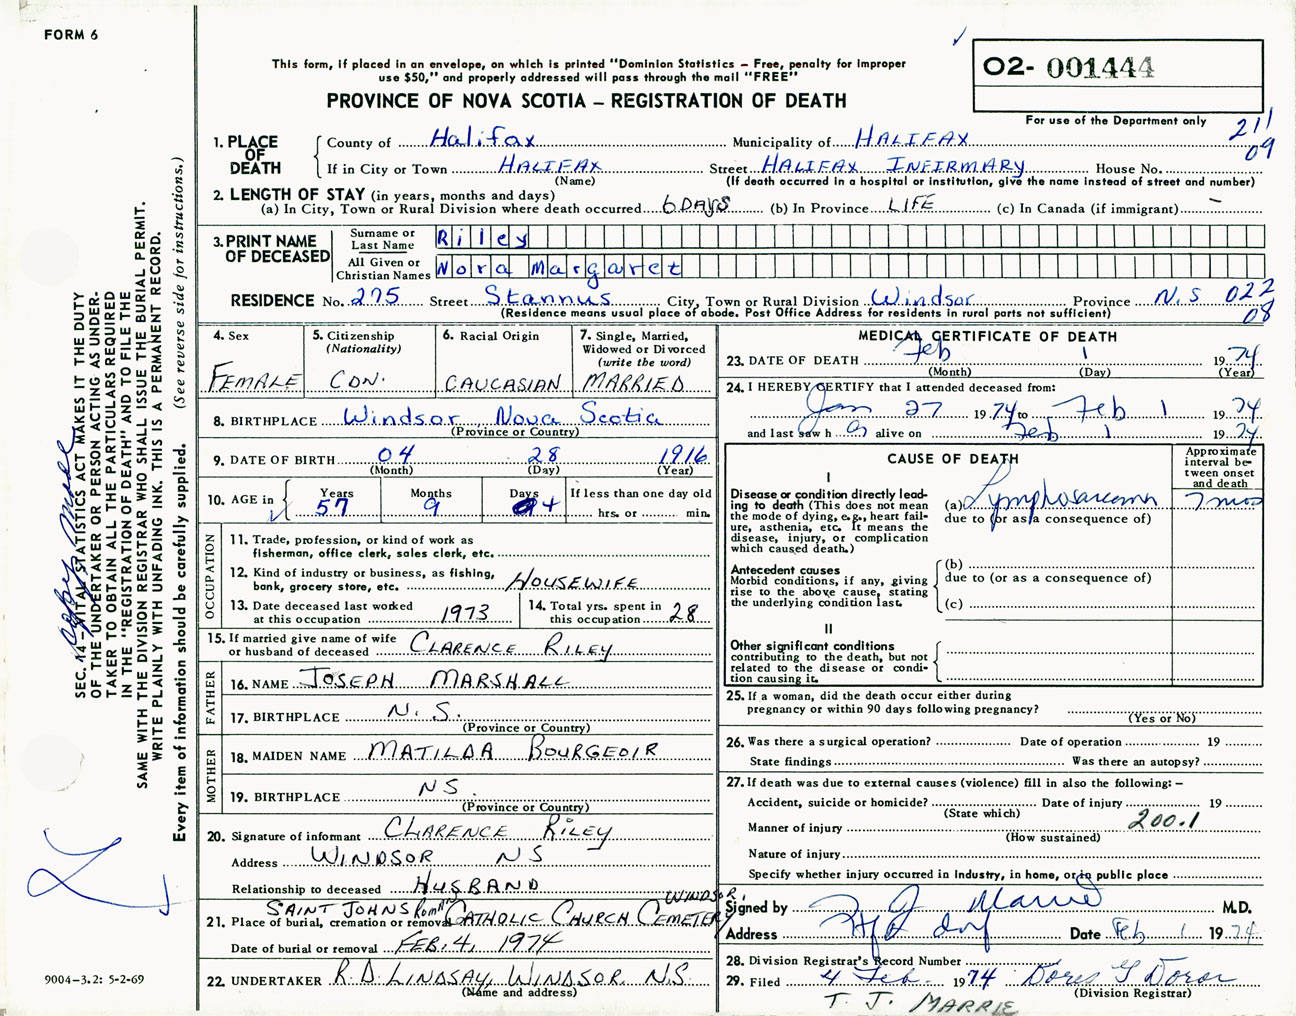 FORM 6
This form, if placed in an envelope, on which is printed "Dominion Statistics – Free, penalty for improper
use $50," and properly addressed will pass through the mail "FREE"
PROVINCE OF NOVA SCOTIA – REGISTRATION OF DEATH
02- 001444
For use of the Department only
211
09
1. PLACE OF DEATH
County of Halifax Municipality of HALIFAX
If in City or Town HALIFAX Street HALIFAX INFIRMARY House No.
(Name) (If death occurred in a hospital or institution, give the name instead of street and number)
2. LENGTH OF STAY (in years, months and days)
(a) In City, Town or Rural Division where death occurred 6 DAYS (b) In Province LIFE (c) In Canada (if immigrant) –
3. PRINT NAME OF DECEASED
Surname or Last Name Riley
All Given or Christian Names Nora Margaret
RESIDENCE No. 275 Street Stannus City, Town or Rural Division Windsor Province N.S 022
(Residence means usual place of abode. Post Office Address for residents in rural parts not sufficient) 08
4. Sex FEMALE
5. Citizenship (Nationality) CDN.
6. Racial Origin CAUCASIAN
7. Single, Married, Widowed or Divorced (write the word) MARRIED
8. BIRTHPLACE Windsor, Nova Scotia
(Province or Country)
9. DATE OF BIRTH 04 28 1916
(Month) (Day) (Year)
10. AGE in Years 57 Months 9 Days 4 If less than one day old
hrs. or min.
OCCUPATION
11. Trade, profession, or kind of work as
fisherman, office clerk, sales clerk, etc.
12. Kind of industry or business, as fishing,
bank, grocery store, etc. HOUSEWIFE
13. Date deceased last worked
at this occupation 1973
14. Total yrs. spent in
this occupation 28
15. If married give name of wife
or husband of deceased CLARENCE RILEY
FATHER
16. NAME JOSEPH MARSHALL
17. BIRTHPLACE N.S.
(Province or Country)
MOTHER
18. MAIDEN NAME MATILDA BOURGEOIR
19. BIRTHPLACE NS
(Province or Country)
20. Signature of informant CLARENCE RILEY
Address WINDSOR NS
Relationship to deceased HUSBAND
21. Place of burial, cremation or removal SAINT JOHNS ROMAN CATHOLIC CHURCH CEMETERY WINDSOR,
Date of burial or removal FEB. 4, 1974
22. UNDERTAKER R.D. LINDSAY, WINDSOR, N.S.
(Name and address)
MEDICAL CERTIFICATE OF DEATH
23. DATE OF DEATH Feb 1 1974
(Month) (Day) (Year)
24. I HEREBY CERTIFY that I attended deceased from:
Jan 27 1974 to Feb 1 1974
and last saw her alive on Feb 1 1974
CAUSE OF DEATH
Approximate interval between onset and death
I
Disease or condition directly leading to death (This does not mean the mode of dying, e.g., heart failure, asthenia, etc. It means the disease, injury, or complication which caused death.)
(a) Lymphosarcoma 7 mos
due to (or as a consequence of)
Antecedent causes
Morbid conditions, if any, giving rise to the above cause, stating the underlying condition last.
(b)
due to (or as a consequence of)
(c)
II
Other significant conditions
contributing to the death, but not related to the disease or condition causing it.
25. If a woman, did the death occur either during
pregnancy or within 90 days following pregnancy?
(Yes or No)
26. Was there a surgical operation? Date of operation 19
State findings Was there an autopsy?
27. If death was due to external causes (violence) fill in also the following: –
Accident, suicide or homicide? Date of injury 19
(State which)
Manner of injury 200.1
(How sustained)
Nature of injury
Specify whether injury occurred in industry, in home, or in public place
Signed by T J Marrie M.D.
Address Date Feb 1 1974
28. Division Registrar's Record Number
29. Filed 4 Feb. 1974
(Division Registrar)
T. J. MARRIE
SEC. 14–VITAL STATISTICS ACT MAKES IT THE DUTY
OF THE UNDERTAKER OR PERSON ACTING AS UNDER-
TAKER TO OBTAIN ALL THE PARTICULARS REQUIRED
IN THE "REGISTRATION OF DEATH" AND TO FILE THE
SAME WITH THE DIVISION REGISTRAR WHO SHALL ISSUE THE BURIAL PERMIT.
WRITE PLAINLY WITH UNFADING INK. THIS IS A PERMANENT RECORD.
Every item of information should be carefully supplied. (See reverse side for instructions.)
9004–3.2: 5-2-69